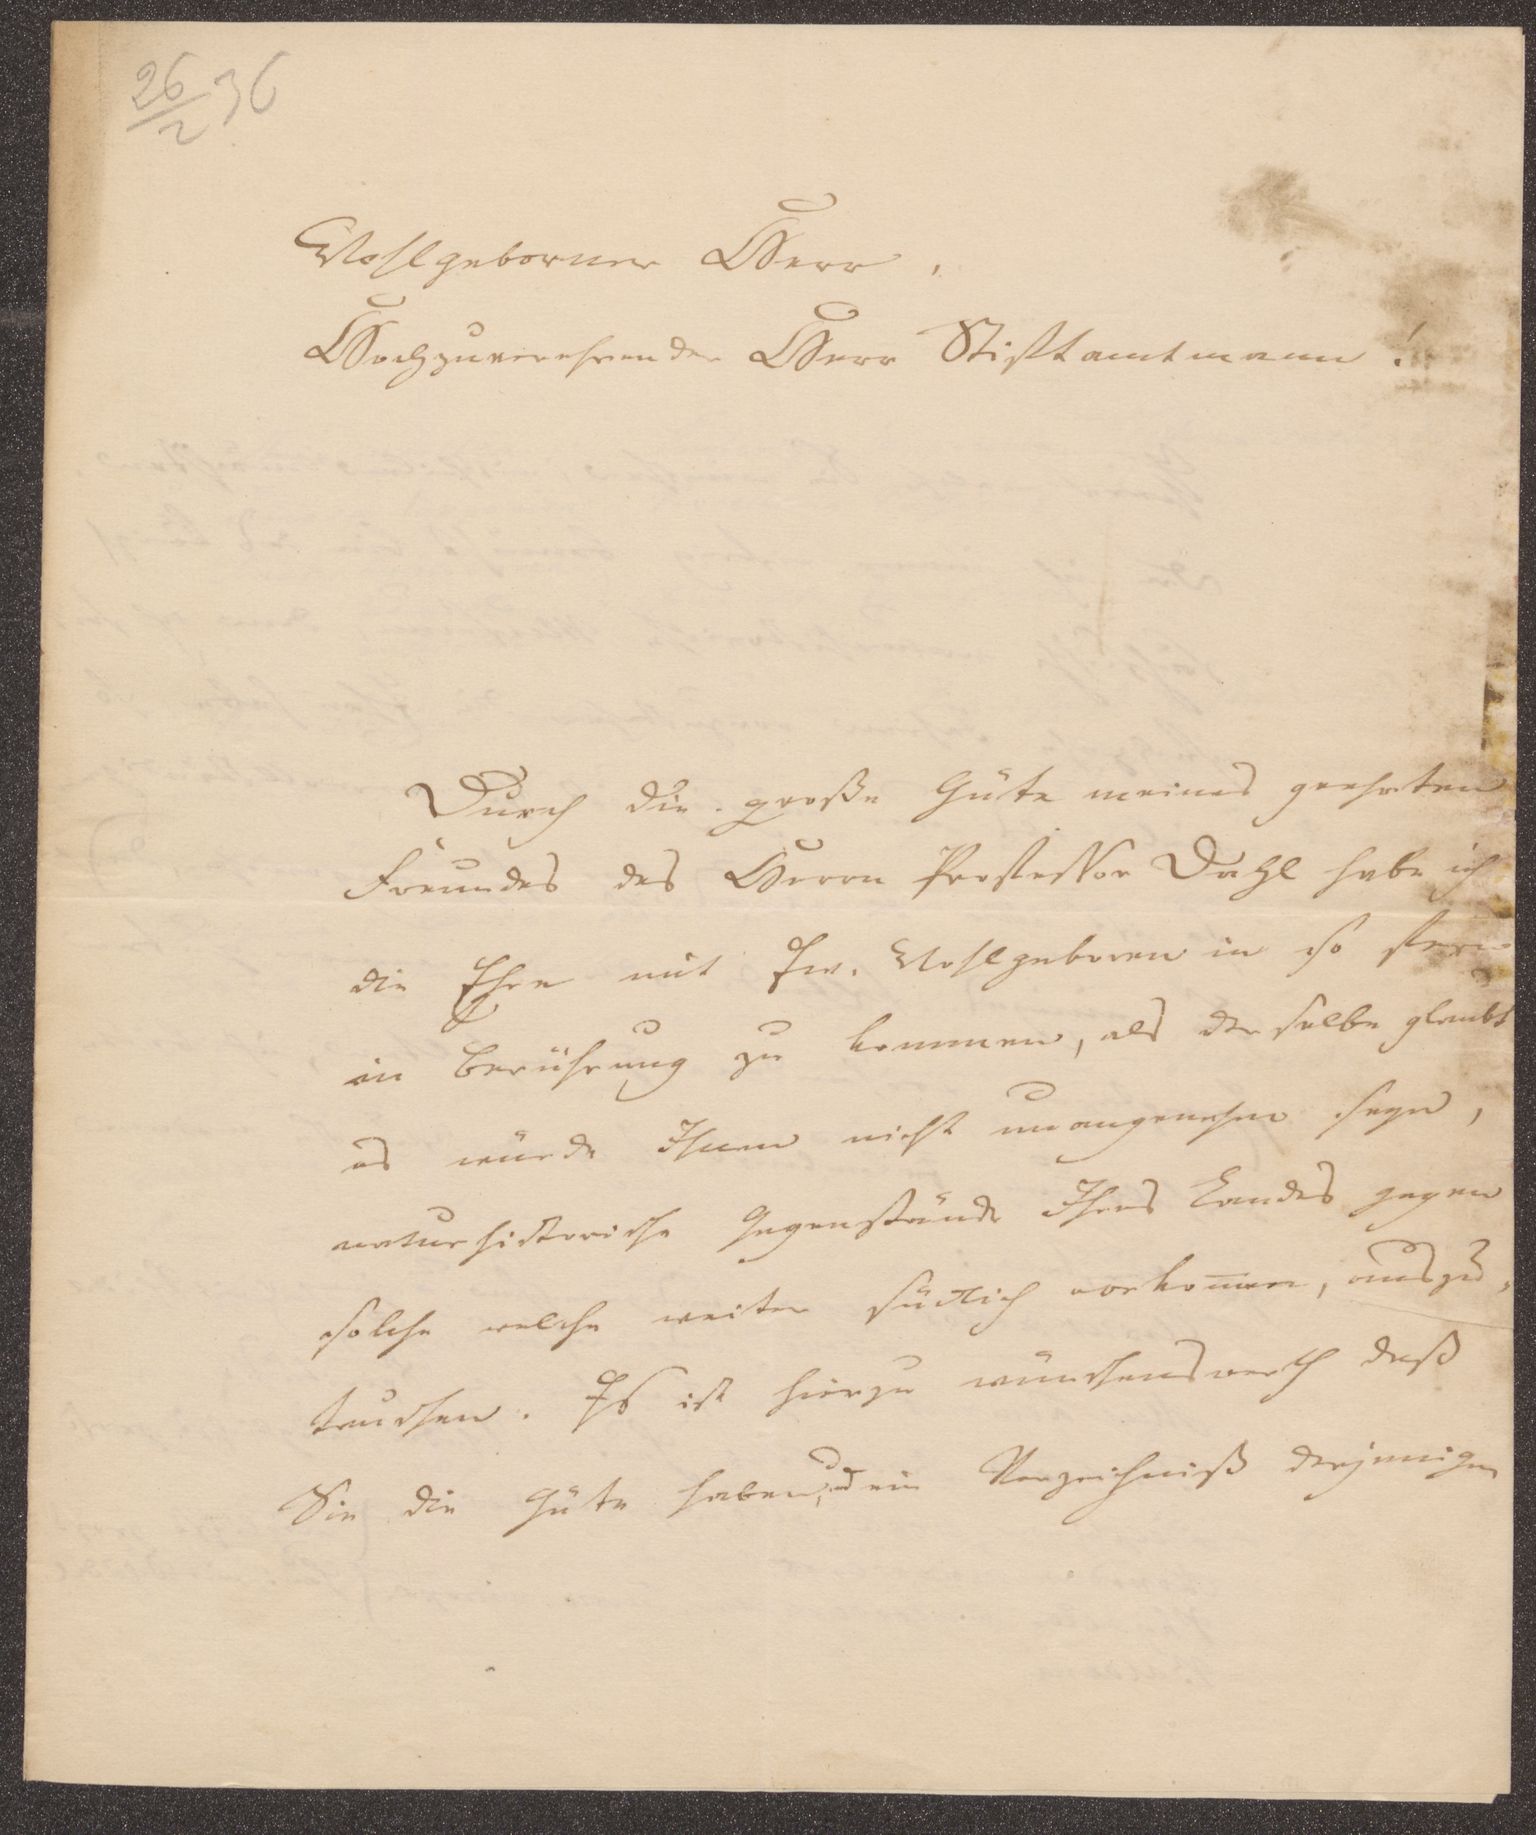 26/2 36
Wohlgeborner Herr,
Hochzuverehrender Herr Stiftamtmann!
Durch die große Güte meines geehrten
Freundes des Herrn Professor Dahl habe ich
die Ehre mit Ew. Wohlgeboren in so fern
in Berührung zu kommen, als derselbe glaubt
es würde Ihnen nicht unangenehm seyn,
naturhistorische Gegenstände Ihres Landes gegen
solche welche weiter südlich vorkom̄en, auszu-
tauschen. Es ist hierzu wünschenswerth daß
Sie die Güte haben, ein Verzeichniß derjenigen